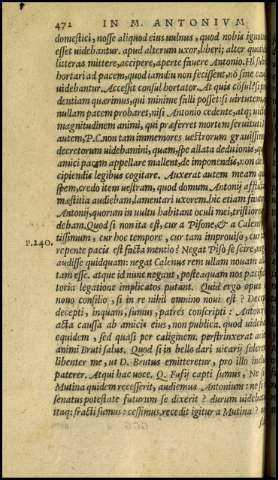 472 IN M. ANTONIVM
domestici, nosse aliquod eius uulnus, quod nobis ignotum
esset uidebantur. apud alterum uxor, liberi; alter quotidie
litteras mittere, accipere, aperte fauere Antonio. Hi subito
hortari ad pacem, quod iamdiu non fecissent, nō sine causa
uidebantur. Accessit consul hortator. At quis cōsul? si pru
dentiam quærimus, qui minime falli posset: si uirtutem, qui
nullam pacem probaret, nisi Antonio cedente, atq; uicto: si
magnitudinem animi, qui præferret mortem seruituti. Vos
autem, P.C. non tam immemores uestrorum grauissimorum
decretorum uidebamini, quam, spe allata deditionis, quam
amici pacem appellare mallent, de imponendis, non de ac
cipiendis legibus cogitare. Auxerat autem meam quidem
spem, credo item uestram, quod domum Antonij afflictam
mæstitia audiebam, lamentari uxorem. hic etiam fautores
Antonij, quorum in uultu habitant oculi mei, tristiores ui
debam. Quod si non ita est, cur a Pisone, & a Caleno po
tissimum, cur hoc tempore, cur tam improuiso, cur tam
P.240. repente pacis est facta mentio? Negat Piso se scire, negat
audisse quidquam: negat Calenus rem ullam nouam alla
tam esse. atque id nunc negant, posteaquam nos pacifica
toria legatione implicatos putant. Quid ergo opus est
nouo consilio, si in re nihil omnino noui est? Decepti,
decepti, inquam, sumus, patres conscripti: Antonij est
acta caussa ab amicis eius, non publica. quod uidebam
equidem, sed quasi per caliginem. perstrinxerat aciem
animi Bruti salus. Quod si in bello dari uicarij solerent,
libenter me, ut D. Brutus emitteretur, pro illo includi
paterer. Atqui hac uoce. Q. Fufij capti sumus, Ne si a
Mutina quidem recesserit, audiemus Antonium: ne si in
senatus potestate futurum se dixerit? durum uidebatur.
itaq; fracti sumus: cessimus. recedit igitur a Mutina?